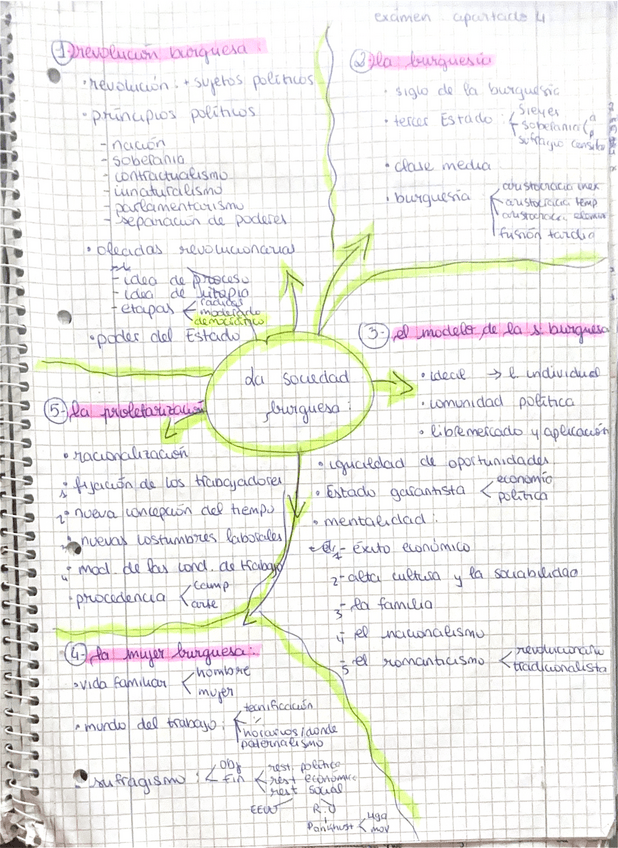 exámen apartado 4
1) revolución burguesa:
• revolución: + sujetos políticos
• principios políticos
- nación
- soberanía
- contractualismo
- iunaturalismo
- parlamentarismo
- separación de poderes
• oleadas revolucionarias
- idea de proceso
- idea de utopia
- etapas
radical
moderado
democrático
• poder del Estado
2) la burguesía
• siglo de la burguesía
• tercer Estado:
Sieyes
soberanía
sufragio
• clase media
• burguesía
aristocracia
aristocracia temp
aristocracia
fusión tardía
la sociedad
burguesa:
3- el modelo de la s. burguesa
• ideal → l. individual
• comunidad política
• libremercado y aplicación
• igualdad de oportunidades
• Estado garantista
economía
política
• mentalidad:
1- éxito económico
2- alta cultura y la sociabilidad
3- la familia
4- el nacionalismo
5- el romanticismo
revolucionario
tradicionalista
5- la proletarización
• racionalización
1- fijación de los trabajadores
2- nueva concepción del tiempo
nuevas costumbres laborales
4- mod. de las cond. de trabajo
• procedencia
camp
arte
4- la mujer burguesa:
• vida familiar
hombre
mujer
• mundo del trabajo:
tecnificación
horarios/donde
paternalismo
• sufragismo:
obj
fin
rest. político
rest económica
rest social
EEUU
R.U
Pankhurst
mov